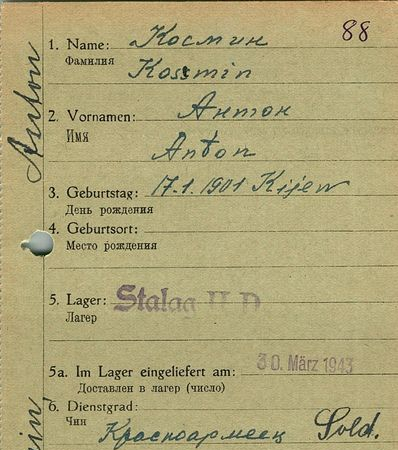 88
1. Name: Космин
Фамилия
Kossmin
2. Vornamen: Антон
Имя
Anton
3. Geburtstag: 17.1.1901 Kijew
День рождения
4. Geburtsort:
Место рождения
5. Lager: Stalag II D
Лагер
30. März 1943
5a. Im Lager eingeliefert am:
Доставлен в лагер (число)
6. Dienstgrad:
Чин
Красноармеец Sold.
Anton